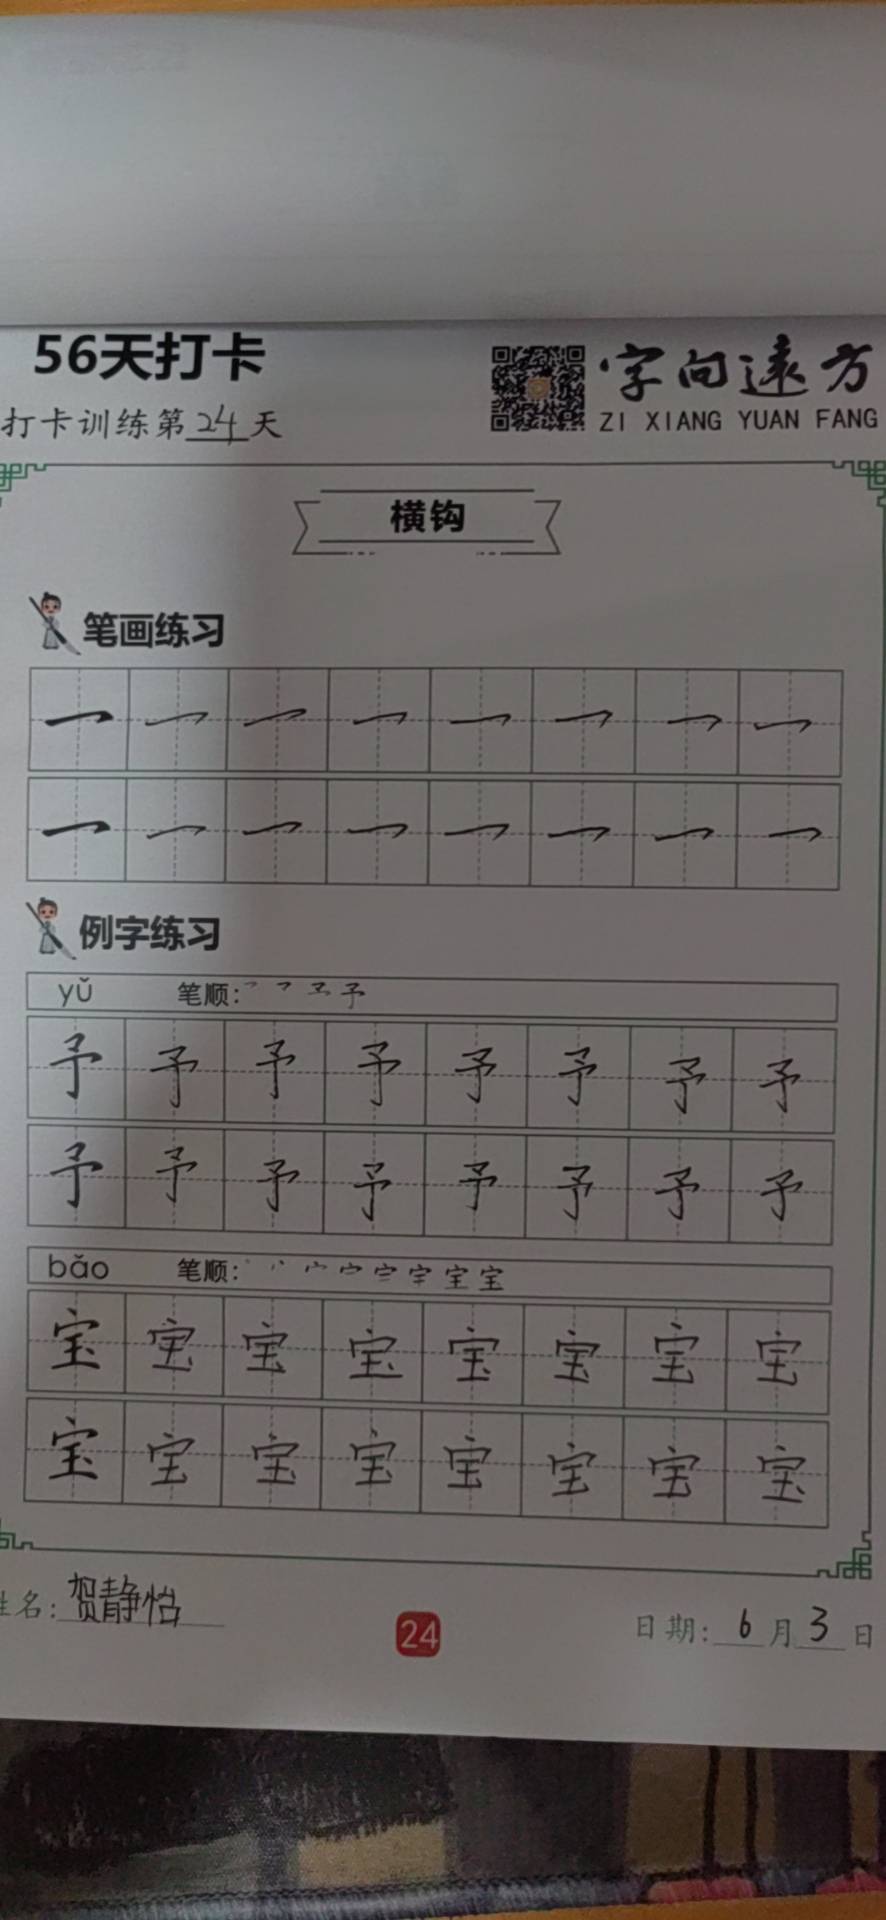 56天打卡
字向遠方
打卡训练第24天
ZI XIANG YUAN FANG
横钩
笔画练习
例字练习
yǔ 笔顺:
予 予 予 予 予 予 予 予
予 予 予 予 予 予 予 予
bǎo 笔顺:
宝 宝 宝 宝 宝 宝 宝 宝
宝 宝 宝 宝 宝 宝 宝 宝
姓名: 贺静怡
24
日期: 6月3日